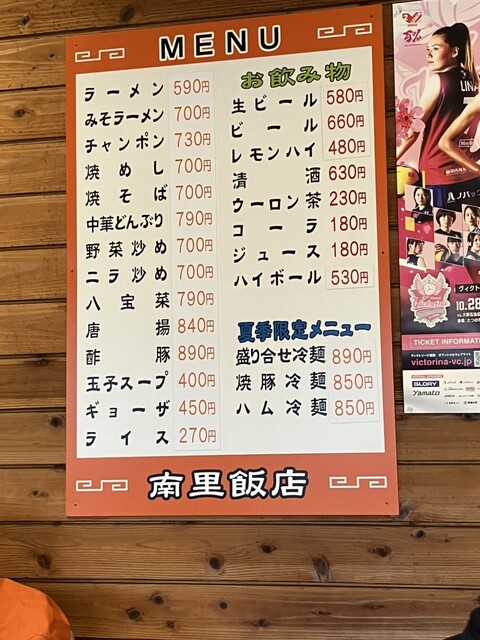 MENU
ラーメン 590円
みそラーメン 700円
チャンポン 730円
焼めし 700円
焼そば 700円
中華どんぶり 790円
野菜炒め 700円
ニラ炒め 700円
八宝菜 790円
唐揚 840円
酢豚 890円
玉子スープ 400円
ギョーザ 450円
ライス 270円
お飲み物
生ビール 580円
ビール 660円
レモンハイ 480円
清酒 630円
ウーロン茶 230円
コーラ 180円
ジュース 180円
ハイボール 530円
夏季限定メニュー
盛り合せ冷麺 890円
焼豚冷麺 850円
ハム冷麺 850円
南里飯店
LINA
ヴィクト
10.28
TICKET INFORMATI
victorina-vc.jp
GLORY
Yamato